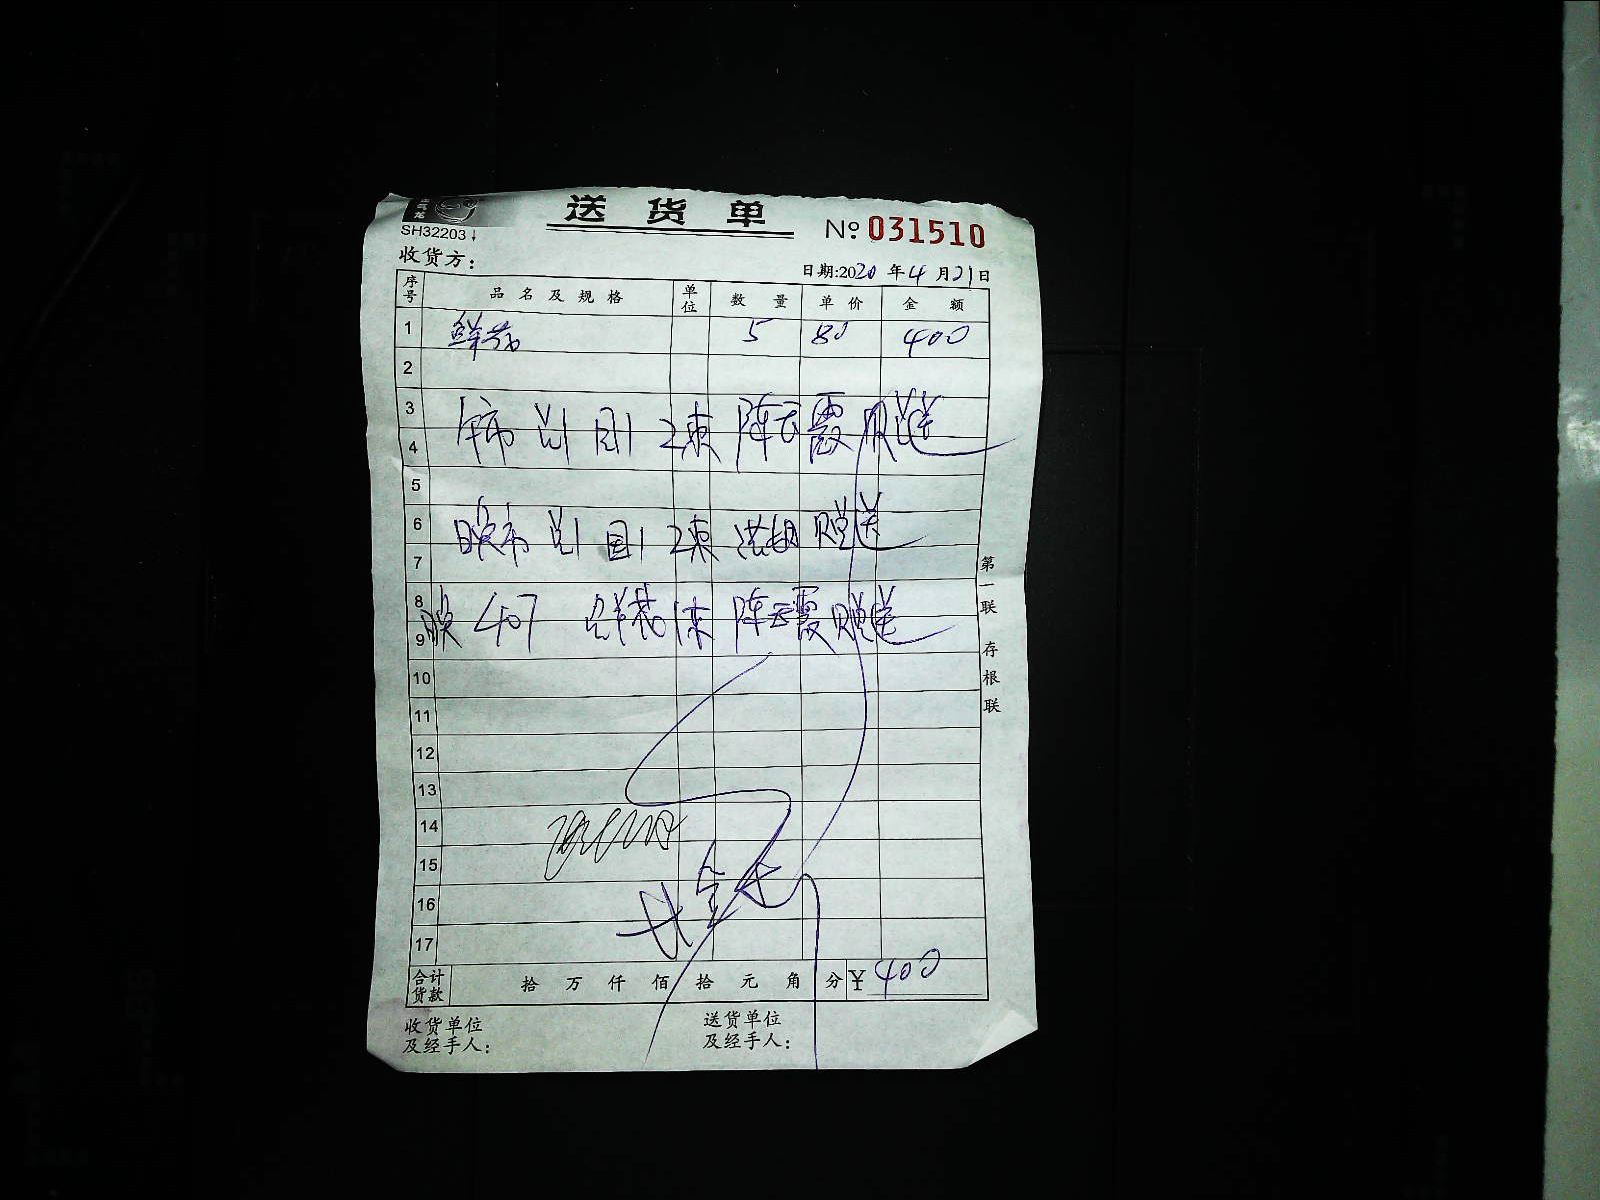 送货单
SH32203
№ 031510
收货方：
日期:2020年4月21日
序号 品名及规格 单位 数量 单价 金额
1 鲜花 5 80 400
2
3
4
市 2束 陈云霞赠送
5
6
7
晚市 2束 赠送
8
9
晚407 鲜花1束 陈云霞赠送
10
11
12
13
14
15
16
17
合计货款 拾万仟佰拾元角分 ¥400
收货单位及经手人：
送货单位及经手人：
第一联 存根联